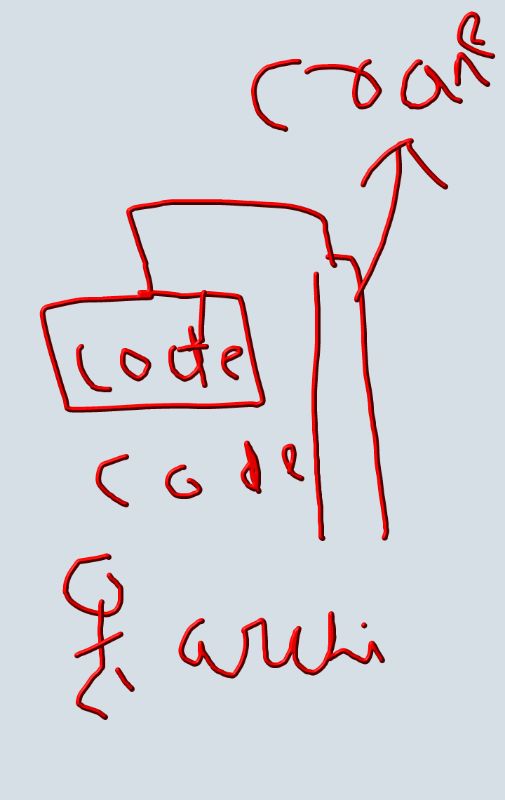 crane
code
code
archi